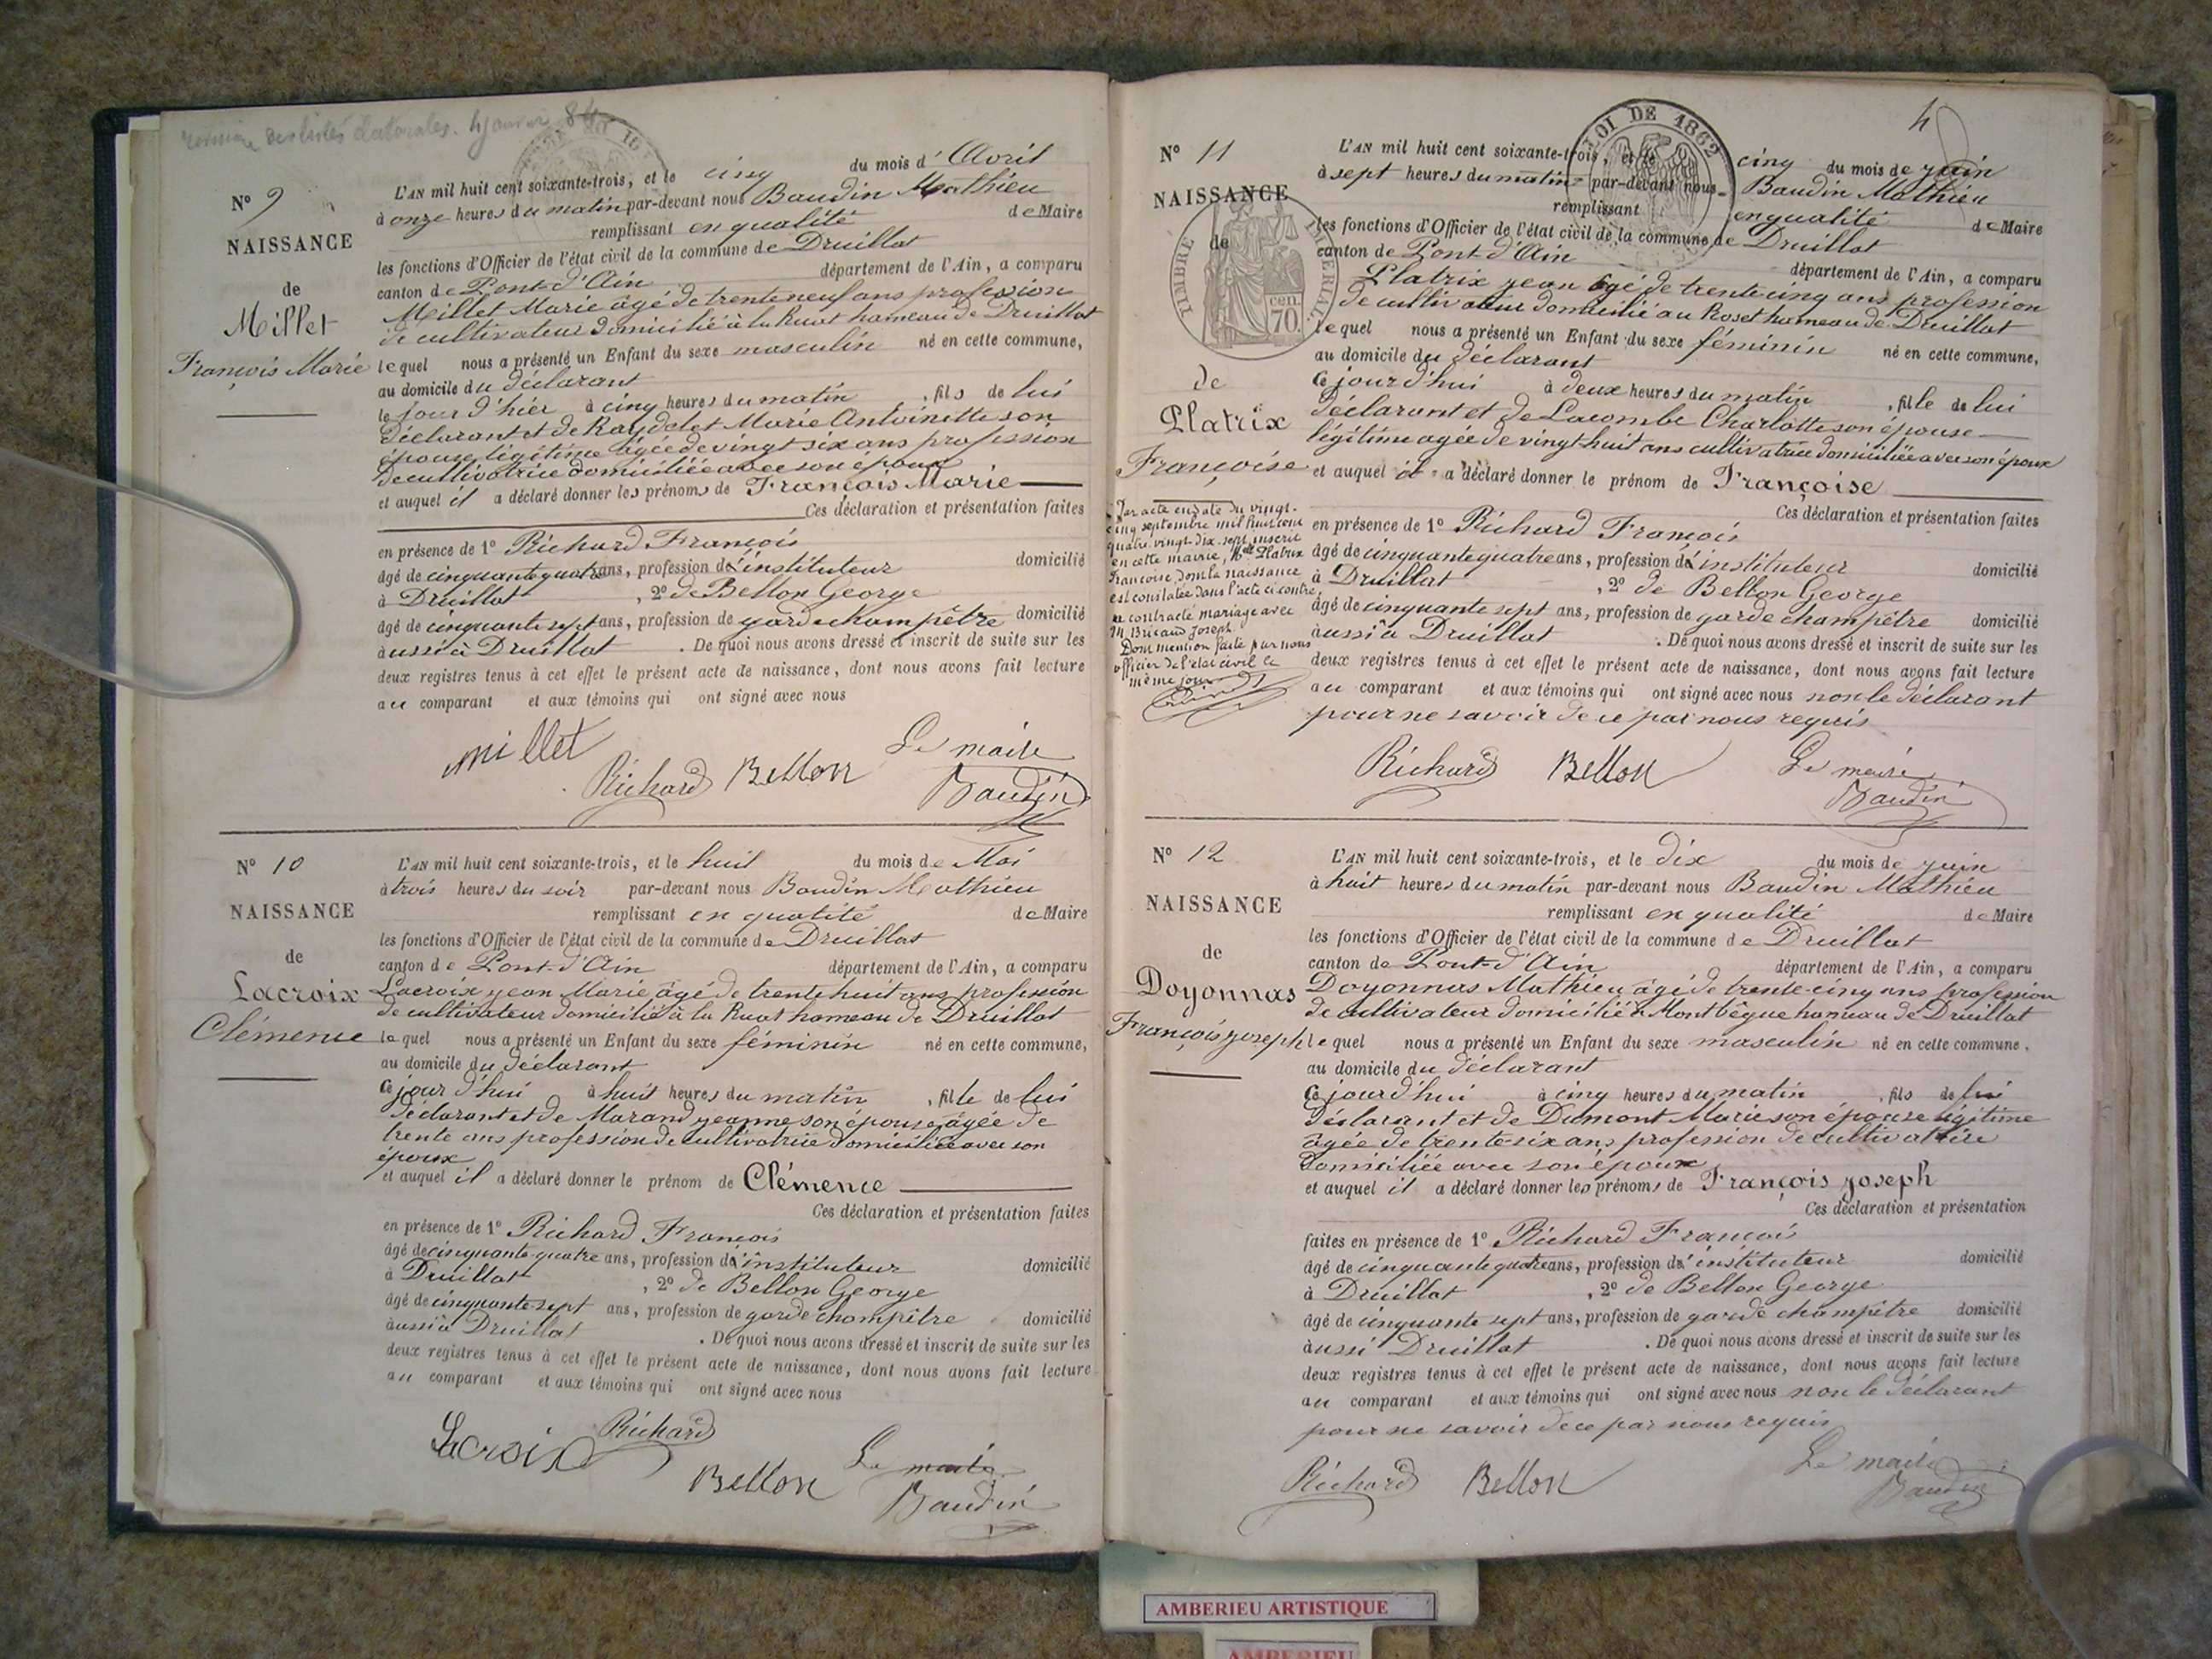 révision des listes électorales. 4 janvier 84
N° 9
NAISSANCE
de
Millet
François Marie
L'AN mil huit cent soixante-trois, et le cinq du mois d'Avril
à onze heures du matin par-devant nous Baudin Mathieu
remplissant en qualité de Maire
les fonctions d'Officier de l'état civil de la commune de Druillat
canton de Pont-d'Ain département de l'Ain, a comparu
Millet Marie âgé de trente neuf ans profession
de cultivateur domicilié à la Ruat hameau de Druillat
lequel nous a présenté un Enfant du sexe masculin né en cette commune,
au domicile du déclarant
le jour d'hier à cinq heures du matin, fils de lui
déclarant et de Raydelet Marie Antoinette son
épouse légitime âgée de vingt six ans profession
de cultivatrice domiciliée avec son époux
et auquel il a déclaré donner les prénoms de François Marie
Ces déclaration et présentation faites
en présence de 1° Richard François
âgé de cinquante quatre ans, profession d'instituteur domicilié
à Druillat, 2° de Bellon George
âgé de cinquante sept ans, profession de garde champêtre domicilié
aussi à Druillat. De quoi nous avons dressé et inscrit de suite sur les
deux registres tenus à cet effet le présent acte de naissance, dont nous avons fait lecture
au comparant et aux témoins qui ont signé avec nous
millet
Richard Bellon Le maire
Baudin
N° 10
NAISSANCE
de
Lacroix
Clémence
L'AN mil huit cent soixante-trois, et le huit du mois de Mai
à trois heures du soir par-devant nous Baudin Mathieu
remplissant en qualité de Maire
les fonctions d'Officier de l'état civil de la commune de Druillat
canton de Pont-d'Ain département de l'Ain, a comparu
Lacroix jean Marie âgé de trente huit ans profession
de cultivateur domicilié à la Ruat hameau de Druillat
lequel nous a présenté un Enfant du sexe féminin né en cette commune,
au domicile du déclarant
ce jour d'hui à huit heures du matin, fille de lui
déclarant et de Marand jeanne son épouse âgée de
trente ans profession de cultivatrice domiciliée avec son
époux
et auquel il a déclaré donner le prénom de Clémence
Ces déclaration et présentation faites
en présence de 1° Richard François
âgé de cinquante-quatre ans, profession d'instituteur domicilié
à Druillat, 2° de Bellon George
âgé de cinquante-sept ans, profession de garde champêtre domicilié
aussi à Druillat. De quoi nous avons dressé et inscrit de suite sur les
deux registres tenus à cet effet le présent acte de naissance, dont nous avons fait lecture
au comparant et aux témoins qui ont signé avec nous
Lacroix Richard
Bellon Le maire
Baudin
4
LOI DE 1862
TIMBRE IMPERIAL
70 cen.
N° 11
NAISSANCE
de
de
Platrix
Françoise
L'AN mil huit cent soixante-trois, et le cinq du mois de juin
à sept heures du matin par-devant nous Baudin Mathieu
remplissant en qualité de Maire
les fonctions d'Officier de l'état civil de la commune de Druillat
canton de Pont-d'Ain département de l'Ain, a comparu
Platrix jean âgé de trente cinq ans profession
de cultivateur domicilié au Roset hameau de Druillat
lequel nous a présenté un Enfant du sexe féminin né en cette commune,
au domicile du déclarant
ce jour d'hui à deux heures du matin, fille de lui
déclarant et de Lacombe Charlotte son épouse
légitime agée de vingt huit ans cultivatrice domiciliée avec son époux
et auquel il a déclaré donner le prénom de Françoise
Ces déclaration et présentation faites
en présence de 1° Richard François
âgé de cinquante quatre ans, profession d'instituteur domicilié
à Druillat, 2° de Bellon George
âgé de cinquante sept ans, profession de garde champêtre domicilié
aussi à Druillat. De quoi nous avons dressé et inscrit de suite sur les
deux registres tenus à cet effet le présent acte de naissance, dont nous avons fait lecture
au comparant et aux témoins qui ont signé avec nous non le déclarant
pour ne savoir de ce par nous requis
Par acte en date du vingt-
cinq septembre mil huit cent
quatre-vingt-dix-sept inscrit
en cette mairie, Melle Platrix
Françoise dont la naissance
est constatée dans l'acte ci-contre,
a contracté mariage avec
M. Bricaud Joseph
Dont mention faite par nous
officier de l'état civil ce
même jour
Richard Bellon Le maire
Baudin
N° 12
NAISSANCE
de
Doyonnas
François joseph
L'AN mil huit cent soixante-trois, et le dix du mois de juin
à huit heures du matin par-devant nous Baudin Mathieu
remplissant en qualité de Maire
les fonctions d'Officier de l'état civil de la commune de Druillat
canton de Pont-d'Ain département de l'Ain, a comparu
Doyonnas Mathieu âgé de trente-cinq ans profession
de cultivateur domicilié à Montbègue hameau de Druillat
lequel nous a présenté un Enfant du sexe masculin né en cette commune.
au domicile du déclarant
ce jourd'hui à cinq heures du matin, fils de lui
déclarant et de Dumont Marie son épouse légitime
âgée de trente-six ans profession de cultivatrice
domiciliée avec son époux
et auquel il a déclaré donner les prénoms de François joseph
Ces déclaration et présentation
faites en présence de 1° Richard François
âgé de cinquante quatre ans, profession d'instituteur domicilié
à Druillat, 2° de Bellon George
âgé de cinquante sept ans, profession de garde champêtre domicilié
aussi Druillat. De quoi nous avons dressé et inscrit de suite sur les
deux registres tenus à cet effet le présent acte de naissance, dont nous avons fait lecture
au comparant et aux témoins qui ont signé avec nous non le déclarant
pour ne savoir de ce par nous requis
Richard Bellon Le maire
Baudin
AMBERIEU ARTISTIQUE
AMBERIEU